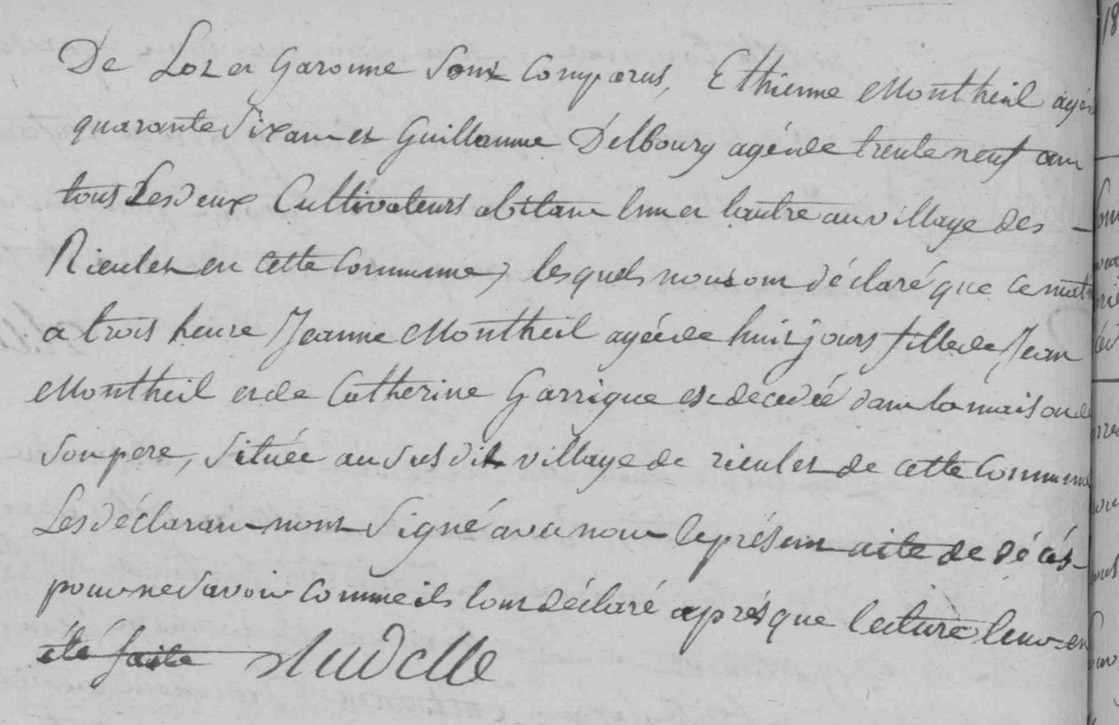 De Lot et Garonne Sont Comparus, Ethienne Montheil agé de
quarante Six ans et Guillaume Delboury agé de trente neuf ans
tous Les deux Cultivateurs abitans lun et lautre au village des
Rieules en cette Commune, lesquels nous ont déclaré que ce matin
a trois heure Jeanne Montheil agée de huit jours fille de Jean
Montheil et de Catherine Garrigue est decedée dans la maison de
Son pere, Située au Sus dit village de rieules de cette Commune
Les déclarans nont Signé avec nous le présent acte de décés
pour ne Savoir Comme ils lont déclaré aprés que lecture leur en
été faite